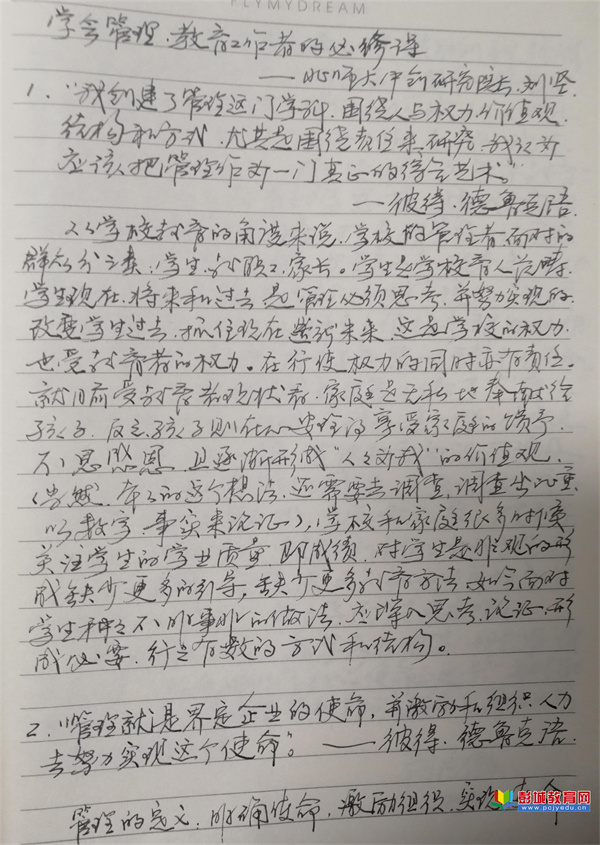 FLYMYDREAM
学会管理·教育工作者的必修课
——北师大中创研究院长 刘坚
1. “我创建了管理这门学科，围绕人与权力、价值观、
结构和方式，尤其是围绕责任来研究，我认为
应该把管理作为一门真正的综合艺术。”
——彼得·德鲁克语
从学校教育的角度来说，学校的管理者面对的
群众分三类：学生、教职工、家长。学生是学校育人范畴，
学生现在、将来和过去是管理必须思考，并努力实现的
改变学生过去，抓住现在，未来，这是学校的权力，
也受教育者的权力。在行使权力的同时亦有责任。
就目前受教育者现状看，家庭是无私地奉献给
孩子，反之，孩子则在心安理得享受家庭的馈予，
不思感恩，且逐渐形成“人人为我”的价值观，
（当然，本人的这个想法，还需要去调查，调查出比重，
以数字、事实来论证），学校和家庭很多时候
关注学生的学业质量，即成绩，对学生是非观的形
成缺少更多的引导，缺少更多教育方法，如今面对
学生种种不的做法，应深入思考、论证，形
成必要，行之有数的方式和结构。
2. “管理就是界定企业的使命，并激励和组织人力
去努力实现这个使命。”——彼得·德鲁克语
管理的定义：明确使命，激励组织，实现使命
彭城教育网
www.pcjyedu.com